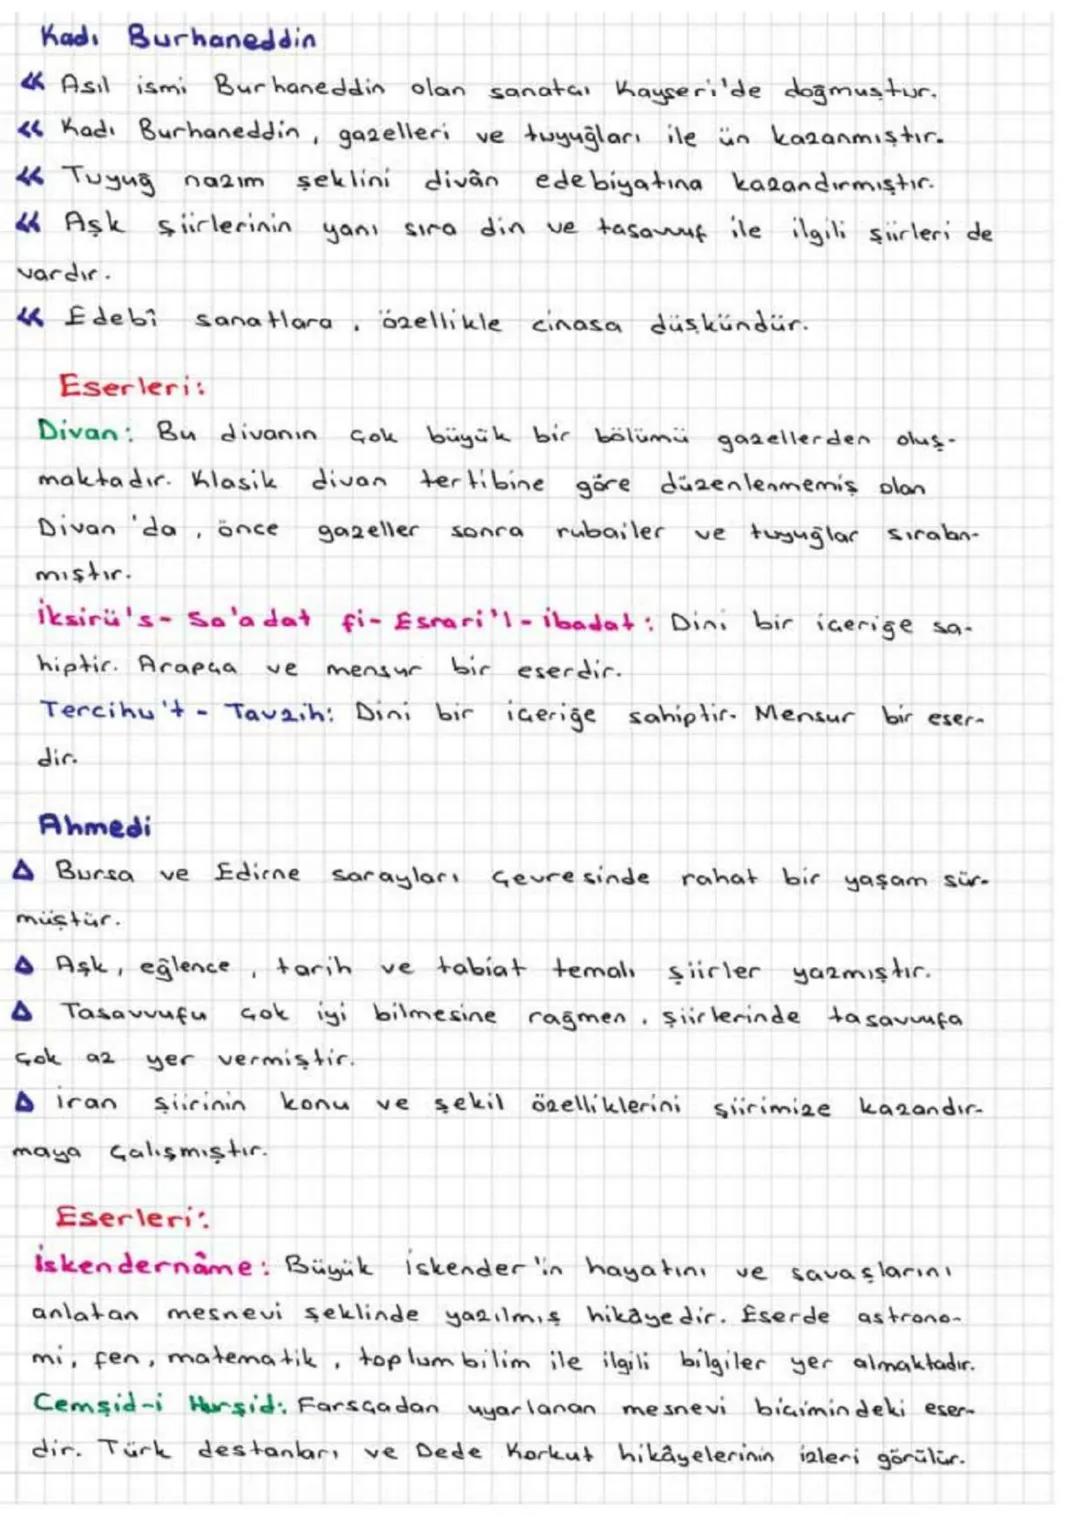 Kadı Burhaneddin
Asıl ismi Burhaneddin olan sanatçı Kayseri'de doğmuştur.
Kadı Burhaneddin, gazelleri ve tuyuğları ile ün kazanmıştır.
Tuyuğ nazım şeklini divân edebiyatına kazandırmıştır.
Aşk şiirlerinin yanı sıra din ve tasavvuf ile ilgili şiirleri de
vardır.
Edebî sanatlara, özellikle cinasa düşkündür.
Eserleri:
Divan: Bu divanın çok büyük bir bölümü gazellerden oluş-
maktadır. Klasik divan tertibine göre düzenlenmemiş olan
Divan'da, önce gazeller sonra rubailer ve tuyuğlar sıralan-
mıştır.
İksirü's-Sa'adat fi-Esrari'l-İbadat: Dini bir içeriğe sa-
hiptir. Arapça ve mensur bir eserdir.
Tercihu't-Tavzih: Dini bir içeriğe sahiptir. Mensur bir eser-
dir.
Ahmedi
Δ Bursa ve Edirne sarayları çevresinde rahat bir yaşam sür-
müştür.
Δ Aşk, eğlence, tarih ve tabiat temalı şiirler yazmıştır.
Δ Tasavvufu çok iyi bilmesine rağmen, şiirlerinde tasavvufa
çok az yer vermiştir.
Δ İran şiirinin konu ve şekil özelliklerini şiirimize kazandır-
maya çalışmıştır.
Eserleri:
İskendernâme: Büyük İskender'in hayatını ve savaşlarını
anlatan mesnevi şeklinde yazılmış hikâyedir. Eserde astrono-
mi, fen, matematik, toplum bilim ile ilgili bilgiler yer almaktadır.
Cemşid-i Hurşid: Farsçadan uyarlanan mesnevi biçimindeki eser-
dir. Türk destanları ve Dede Korkut hikâyelerinin izleri görülür.